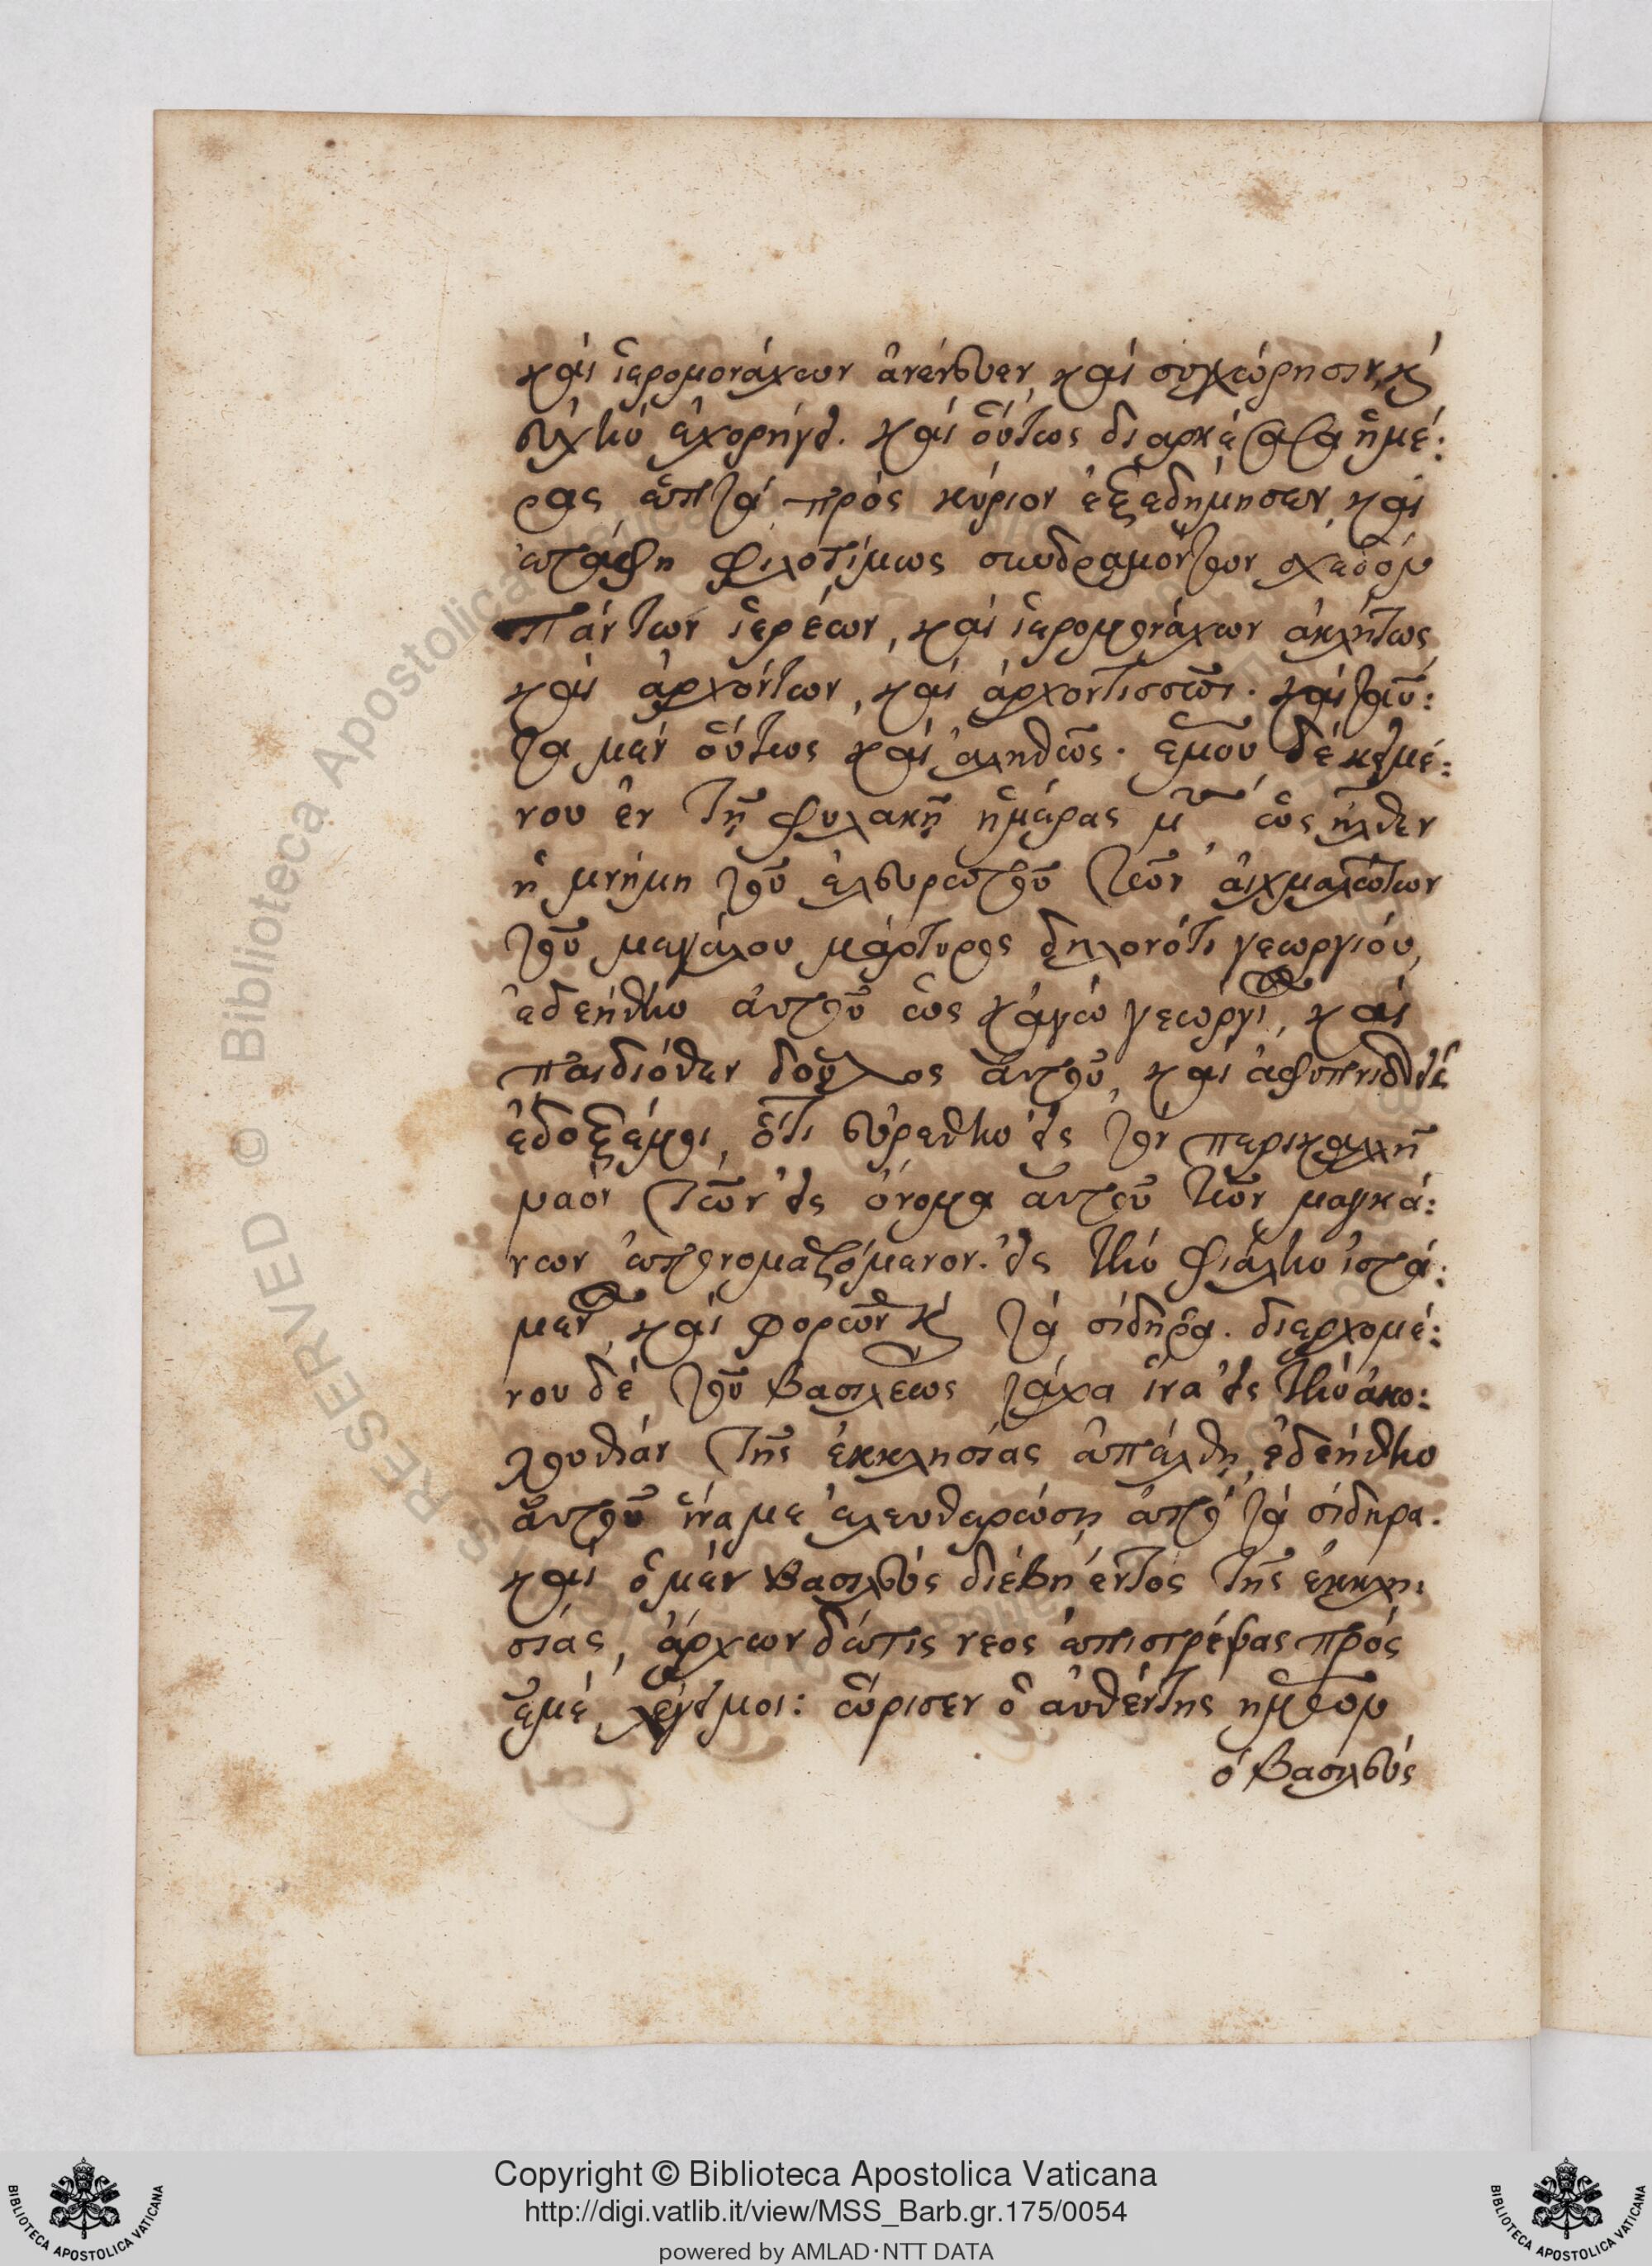 καὶ ἱερομονάχων ἀνένευεν, καὶ συγχώρησιν, κ(αὶ)
εὐχὴν ἐχορήγει. καὶ οὕτως διαρκέσασα ἡμέ:
ρας ἑπτά πρὸς κύριον ἐξεδήμησεν, καὶ
ἐτάφη φιλοτίμως συνδραμόντων σχεδὸν
πάντων ἱερέων, καὶ ἱερομονάχων ἀκλήτως
καὶ ἀρχόντων, καὶ ἀρχοντισσῶν. καὶ ταῦ:
τα μὲν οὕτως καὶ ἀληθῶς. ἐμοῦ δὲ κειμέ:
νου ἐν τῇ φυλακῇ ἡμέρας μ ἕως ἦλθεν
ἡ μνήμη τοῦ ἐλευρωτοῦ τῶν αἰχμαλώτων
τοῦ μεγάλου μάρτυρος δηλονότι γεωργίου,
ἐδεήθην αὐτοῦ ὡς κἀγὼ γεώργιος, καὶ
παιδιόθεν δοῦλος αὐτοῦ, καὶ ἀφυπνισθεὶς
ἔδοξέ μοι, ὅτι εὑρέθην εἰς τὸν περικαλλῆ
ναὸν τῶν εἰς ὄνομα αὐτοῦ τῶν μαγκά:
νων ἐπονομαζόμενον. εἰς τὴν φιάλην ἱστά:
μενος, καὶ φορῶν κ(αὶ) τὰ σίδηρα. διερχομέ:
νου δὲ τοῦ βασιλέως τάχα ἵνα εἰς τὴν ἀκο:
λουθίαν τῆς ἐκκλησίας ἀπέλθῃ, ἐδεήθην
αὐτοῦ ἵνα με ἐλευθερώσῃ ἀπὸ τὰ σίδηρα.
καὶ ὁ μὲν βασιλεὺς διέβη ἐντὸς τῆς ἐκκλη:
σίας, ἄρχων δέ τις νέος ἐπιστρέψας πρὸς
ἐμέ, λέγει μοι: ὥρισεν ὁ αὐθέντης ἡμῶν
ὁ βασιλεὺς
Copyright © Biblioteca Apostolica Vaticana
http://digi.vatlib.it/view/MSS_Barb.gr.175/0054
powered by AMLAD·NTT DATA